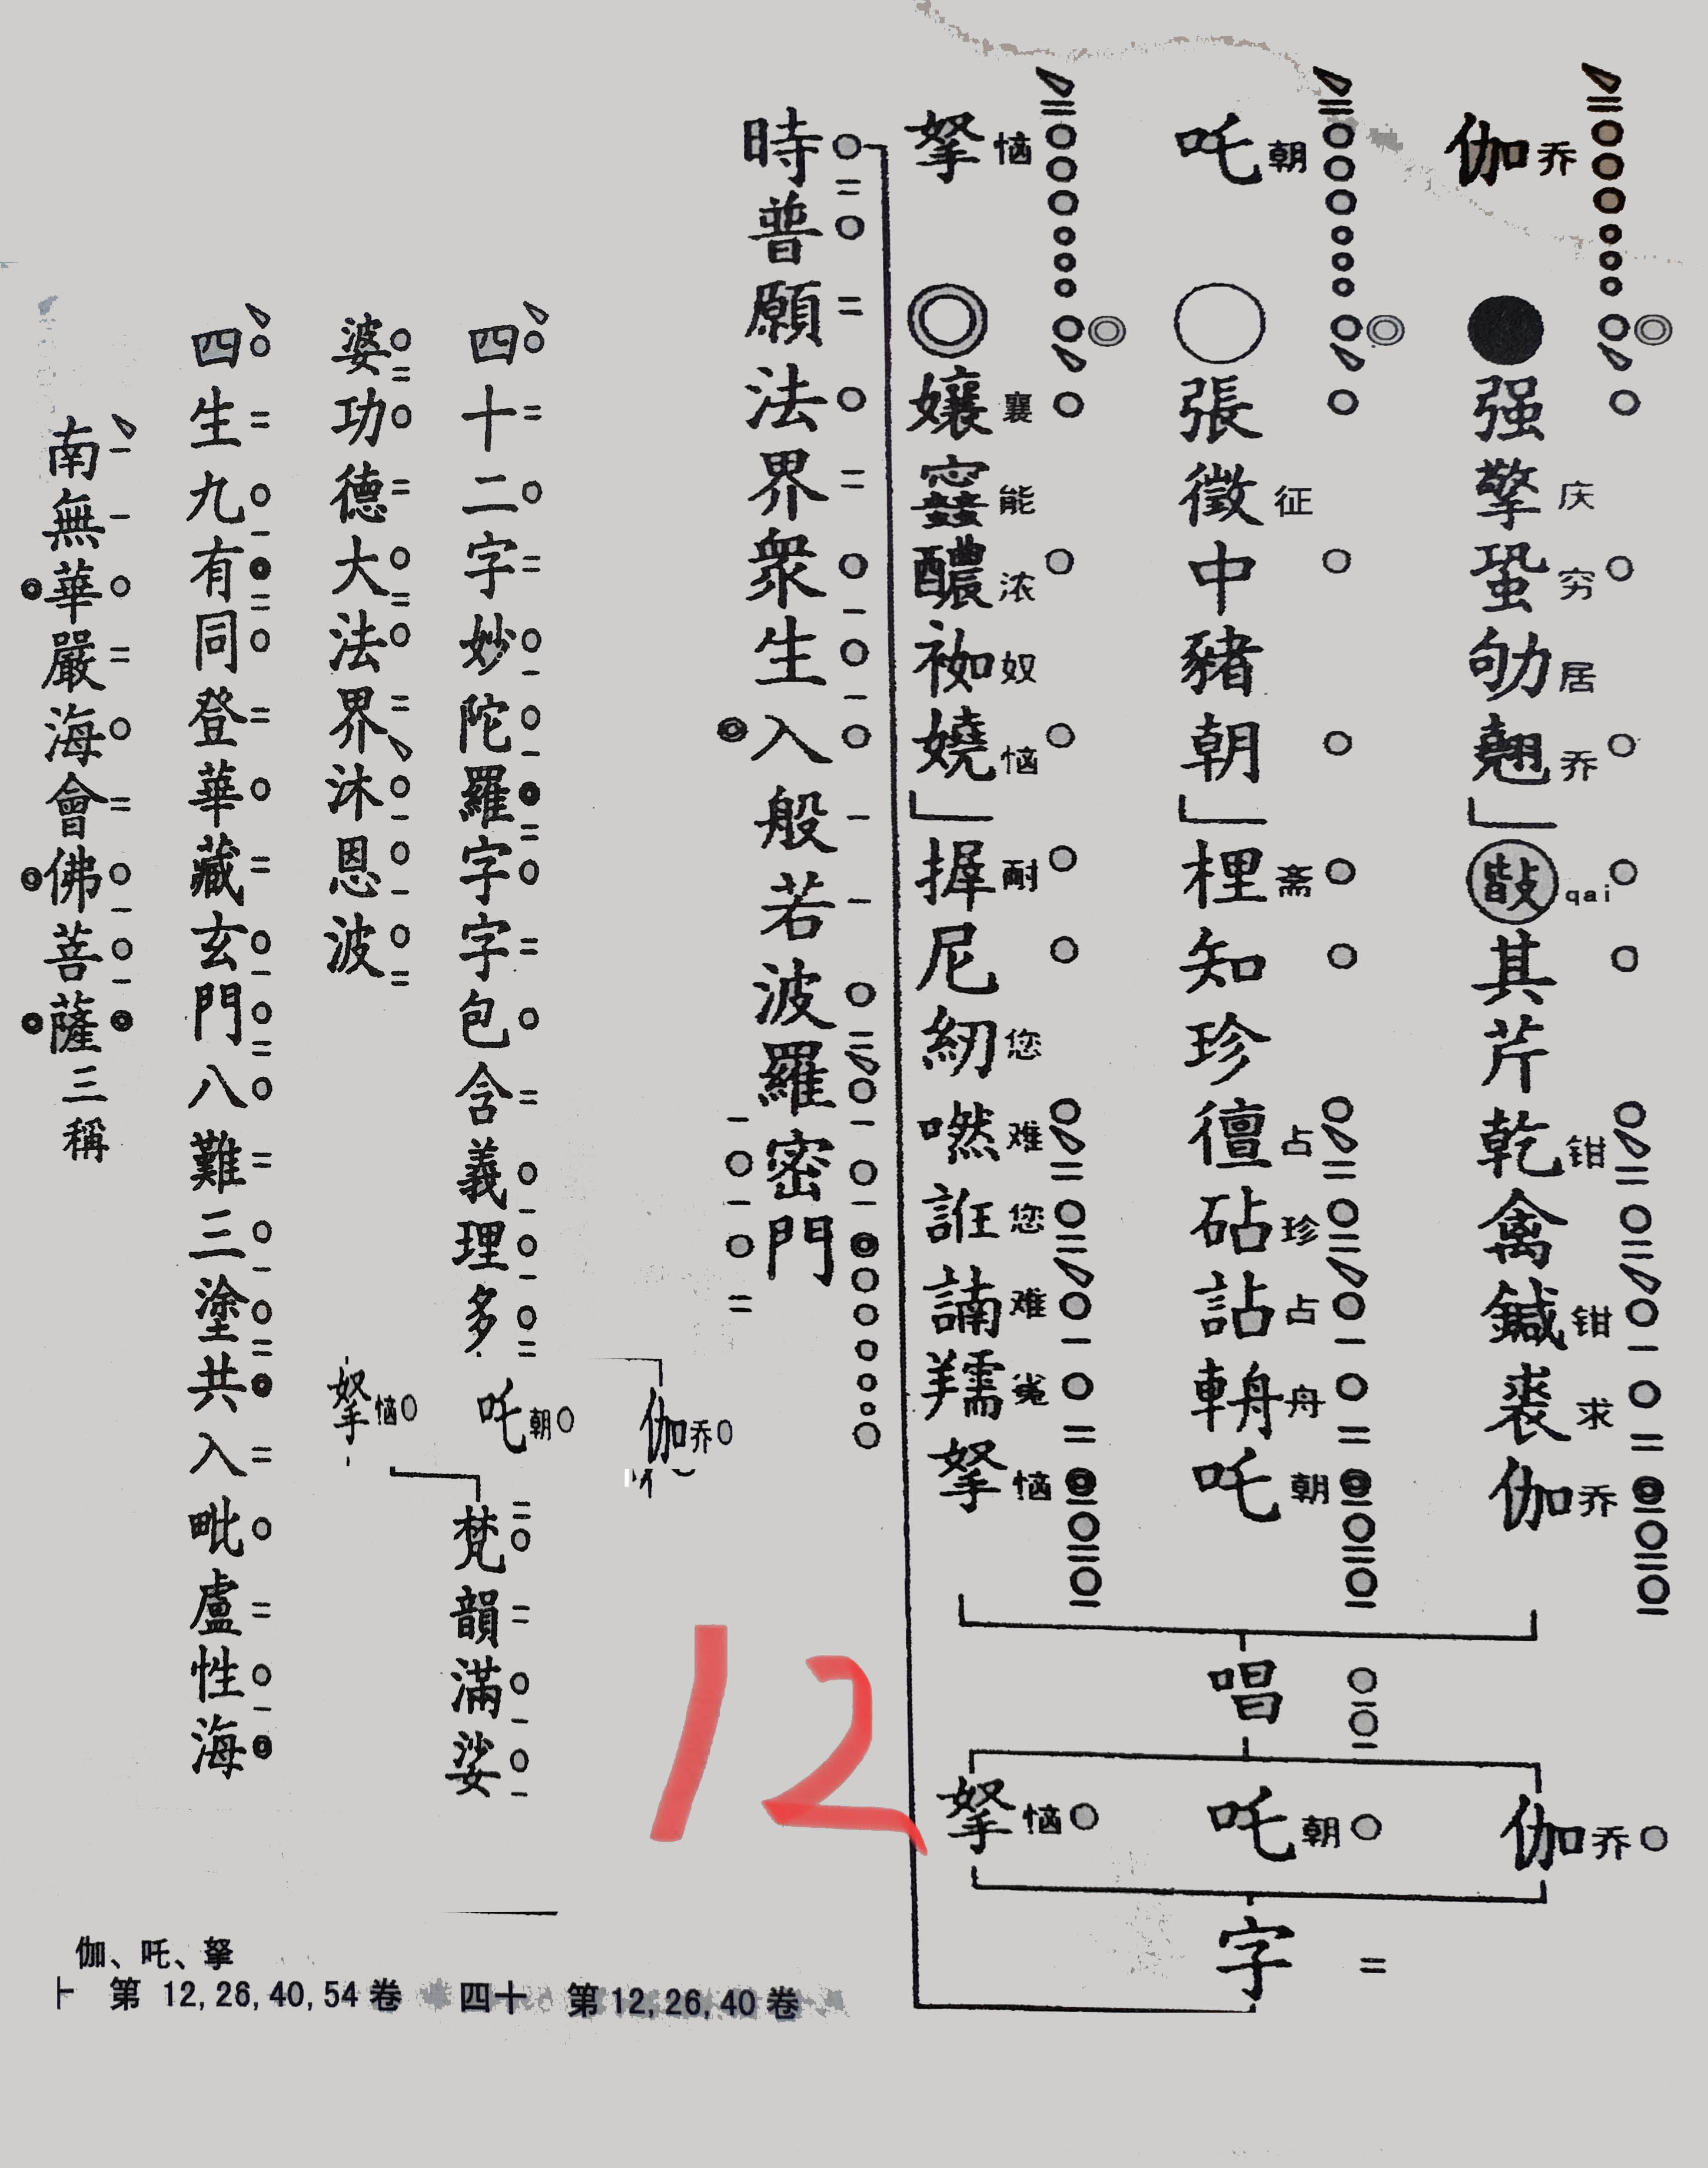 伽乔 ● 强擎庆蛩穷劬居翹乔 㪡qai其芹乾钳禽鍼钳裘求伽乔
吒朝 ○ 張徵征中豬朝 梩斋知珍徸占砧珍詀占輈舟吒朝
拏恼 ◎ 孃襄能醲浓袽奴嬈恼 搱耐尼紉您难您諵难羺拏恼
唱
伽乔 吒朝 拏恼
字
時普願法界衆生入般若波羅密門
四十二字妙陀羅字字包含義理多
伽乔 吒朝 拏恼
梵韻滿娑
婆功德大法界沐恩波
四生九有同登華藏玄門八難三塗共入毗盧性海
南無華嚴海會佛菩薩三稱
12
伽、吒、拏
第 12,26,40,54 卷 四十 第12,26,40 卷